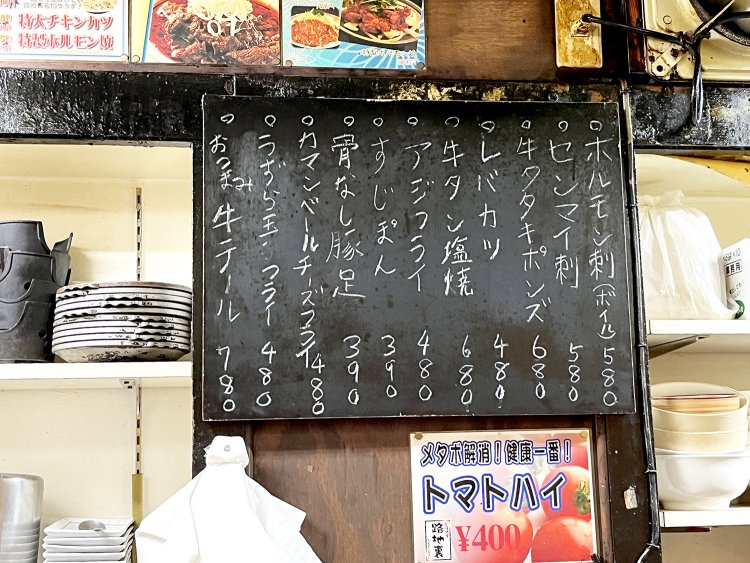 特大チキンカツ
特製ホルモン焼
ホルモン刺(ボイル) 580
センマイ刺 580
牛タタキポンズ 680
レバカツ 480
牛タン塩焼 680
アジフライ 480
すじぽん 390
骨なし豚足 390
カマンベールチーズフライ 480
うずら玉子フライ 480
おつまみ牛テール 780
メタボ解消!健康一番!
トマトハイ
路地裏
¥400